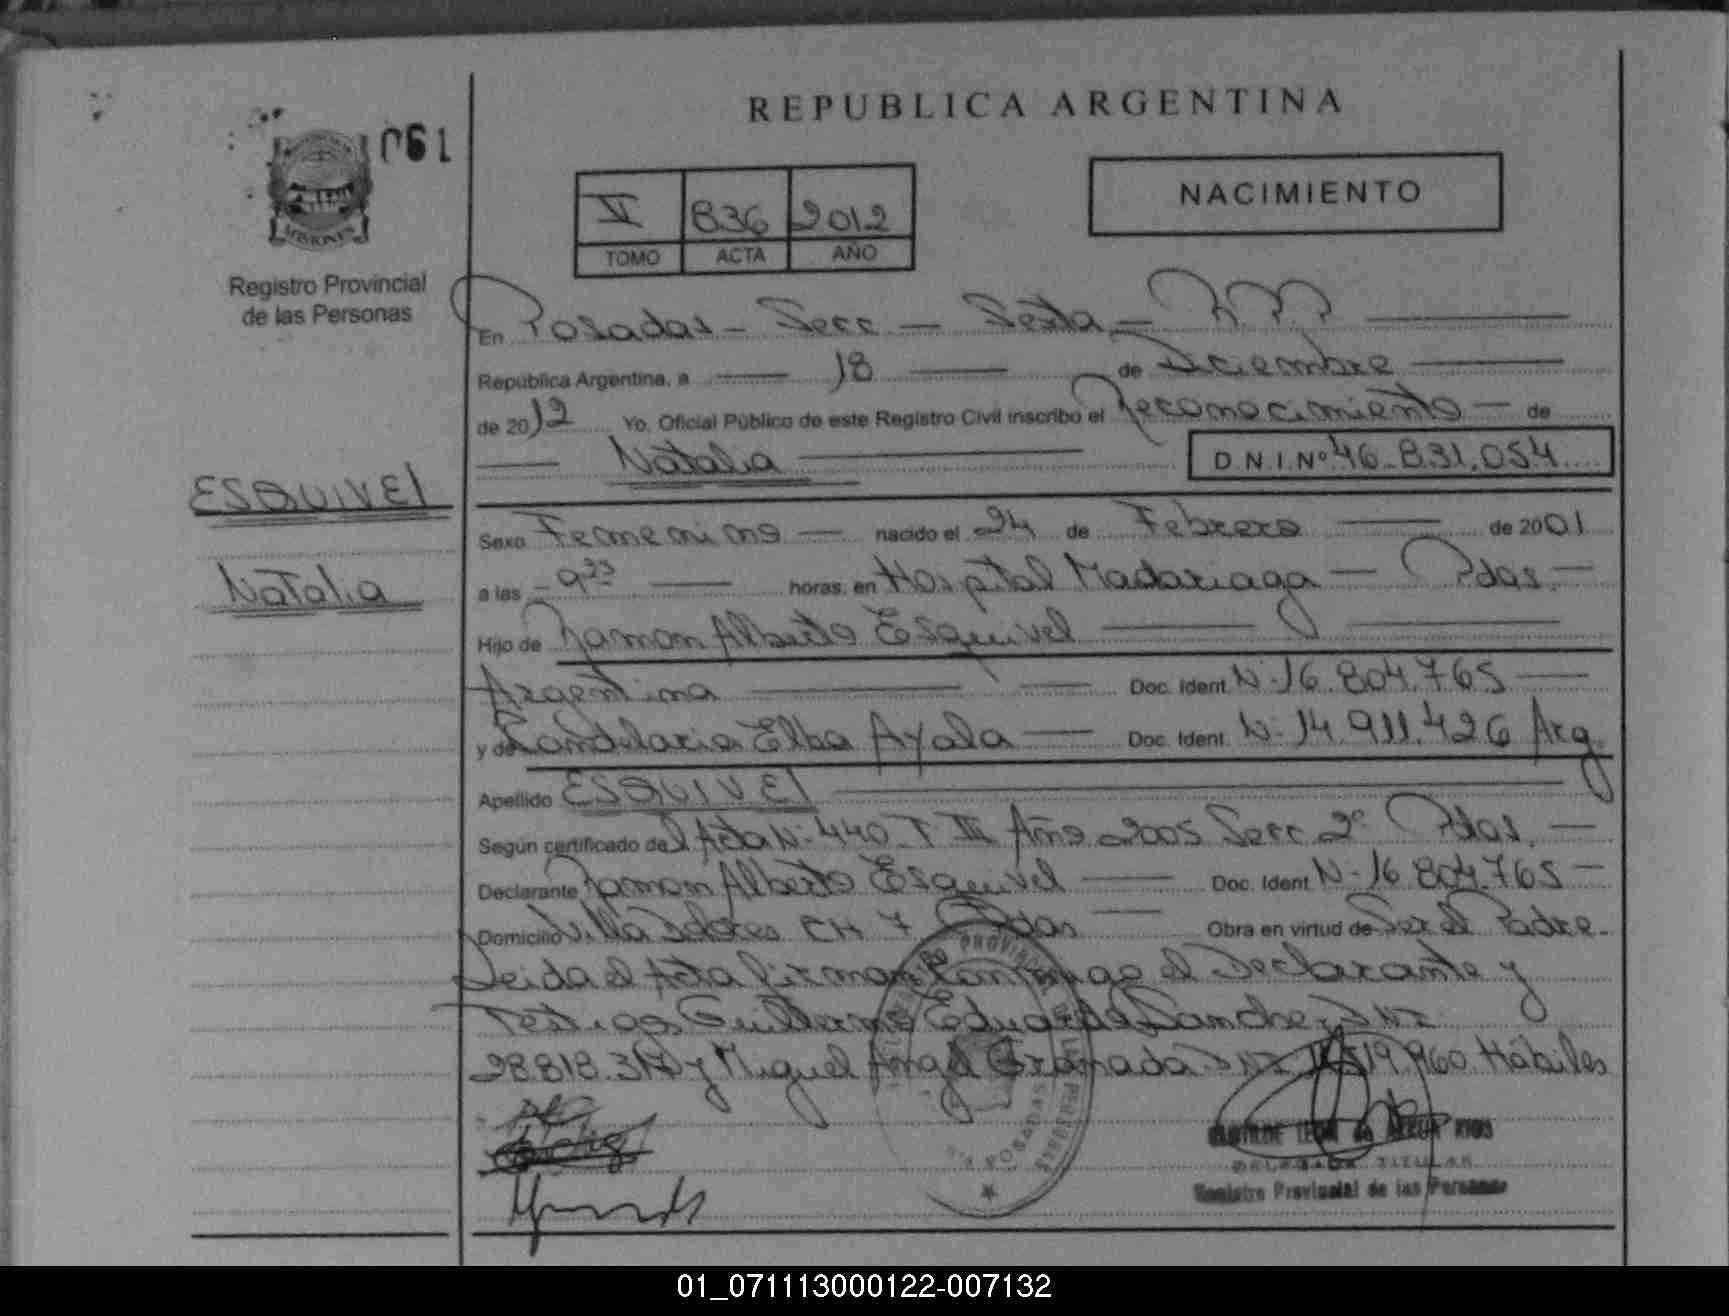 REPUBLICA ARGENTINA
061
NACIMIENTO
VI 836 2012
TOMO ACTA AÑO
MISIONES
Registro Provincial
de las Personas
En Posadas - Secc - Sexta -
República Argentina, a 18 de Diciembre
de 2012 Yo, Oficial Público de este Registro Civil inscribo el Reconocimiento - de
Natalia D.N.I.Nº 46.831.054
ESQUIVEL
Natalia
Sexo Femenino - nacido el 24 de Febrero de 2001
a las 9 23 horas, en Hospital Madariaga - Pdas -
Hijo de Ramon Alberto Esquivel y
Argentina Doc. Ident. N-16.804.765
y de Candelaria Elba Ayala Doc. Ident. N-14.911.426 Arg.
Apellido ESQUIVEL
Según certificado del Acta N-440 T III Año 2005 Secc 2º Pdas.
Declarante Ramon Alberto Esquivel Doc. Ident. N-16.804.765
Domicilio Villa Dolores CH 7 Pdas Obra en virtud de Ser el Padre.
Leida el Acta firman Conmigo el Declarante y
Testigos Guillermo Eduardo Sanchez DNI
28.818. y Miguel Angel Granada DNI 960 Hábiles
POSADAS
DELEGADA TITULAR
Registro Provincial de las Personas
01_071113000122-007132